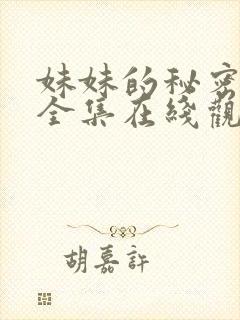 妹妹的秘密
全集在线觀
胡嘉許